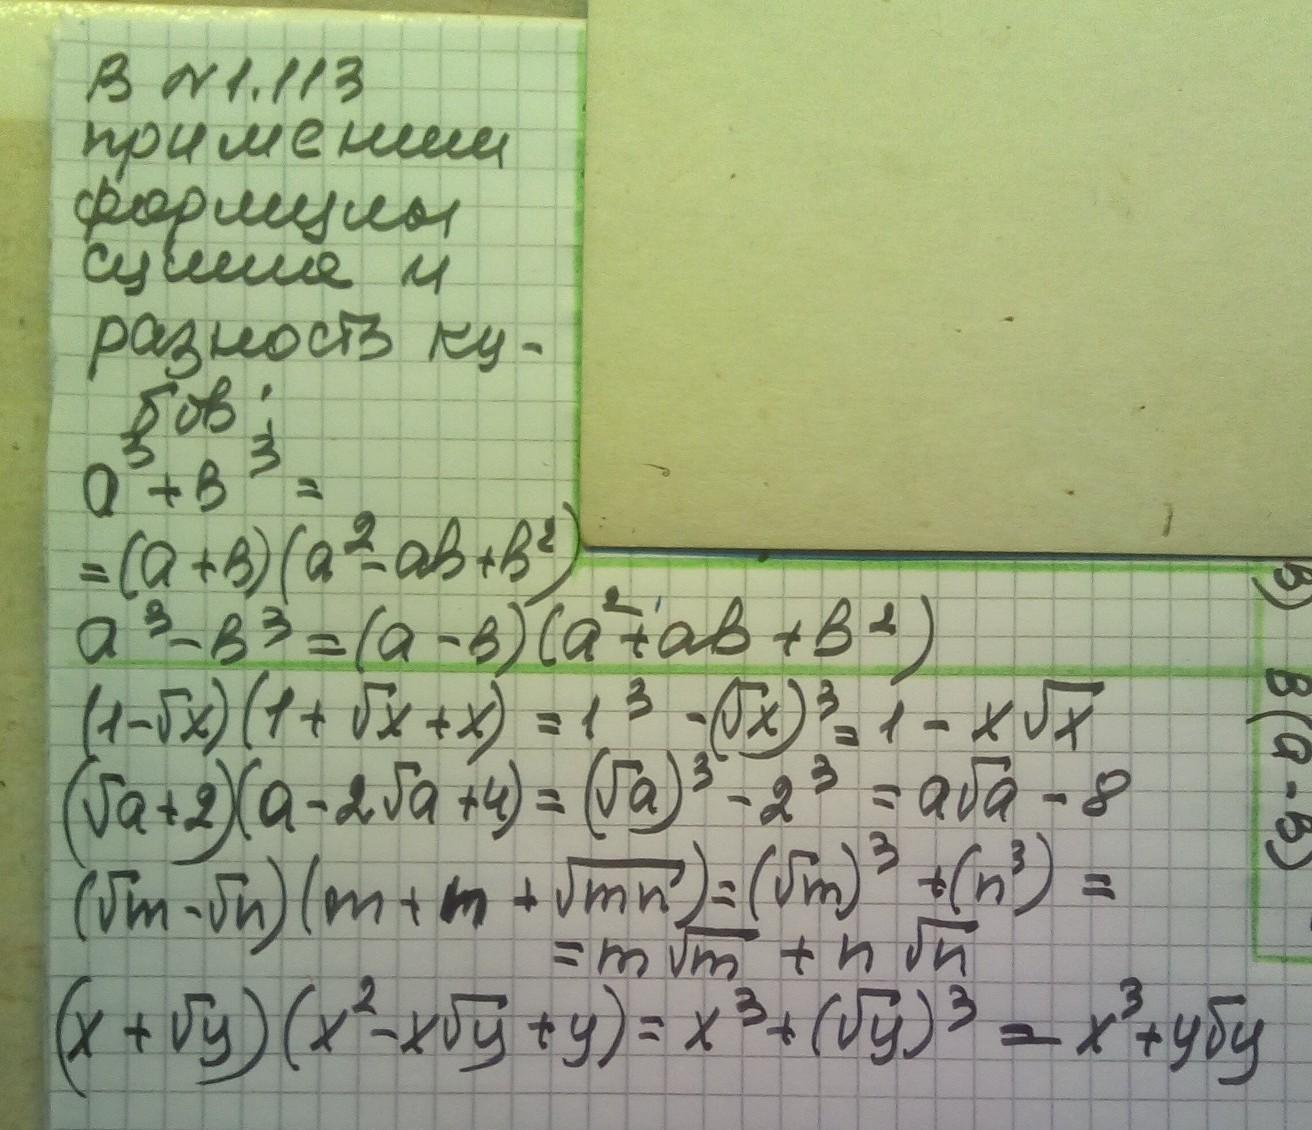 В №1.113
применим
формулы
сумма и
разность ку-
бов:
a³ + в³ =
= (a + в)(a² - aв + в²)
a³ - в³ = (a - в)(a² + aв + в²)
(1 - √x)(1 + √x + x) = 1³ - (√x)³ = 1 - x√x
(√a + 2)(a - 2√a + 4) = (√a)³ - 2³ = a√a - 8
(√m - √n)(m + m + √mn) = (√m)³ + (n³) =
= m√m + n√n
(x + √y)(x² - x√y + y) = x³ + (√y)³ = x³ + y√y
В)
В(a - в)